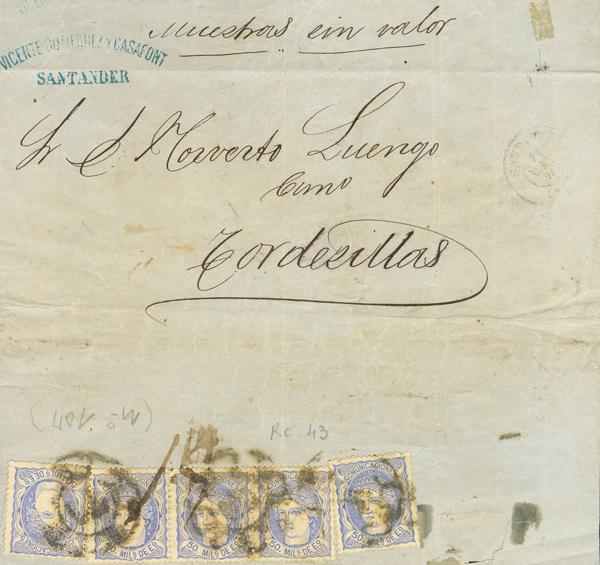 VICENTE GUTIERREZ Y CASAFONT
SANTANDER
Muestras sin valor
Sr D Norverto Luengo
Tordesillas
RC 43
COMUNICACIONES
50 MILS DE Eo.
50 MILS DE Eo.
50 MILS DE Eo.
COMUNICACIONES
50 MILS DE Eo.
COMUNICACIONES
50 MILS DE Eo.